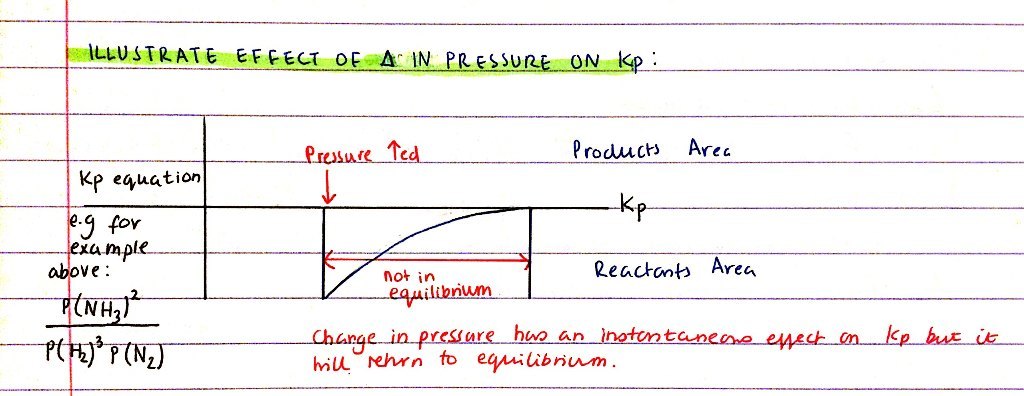 ILLUSTRATE EFFECT OF Δ IN PRESSURE ON Kp :
Pressure ↑ed
Products Area
Kp equation
Kp
e.g for
example
above:
P(NH₃)²
P(H₂)³ P(N₂)
not in
equilibrium
Reactants Area
Change in pressure has an instantaneous effect on Kp but it
will return to equilibrium.